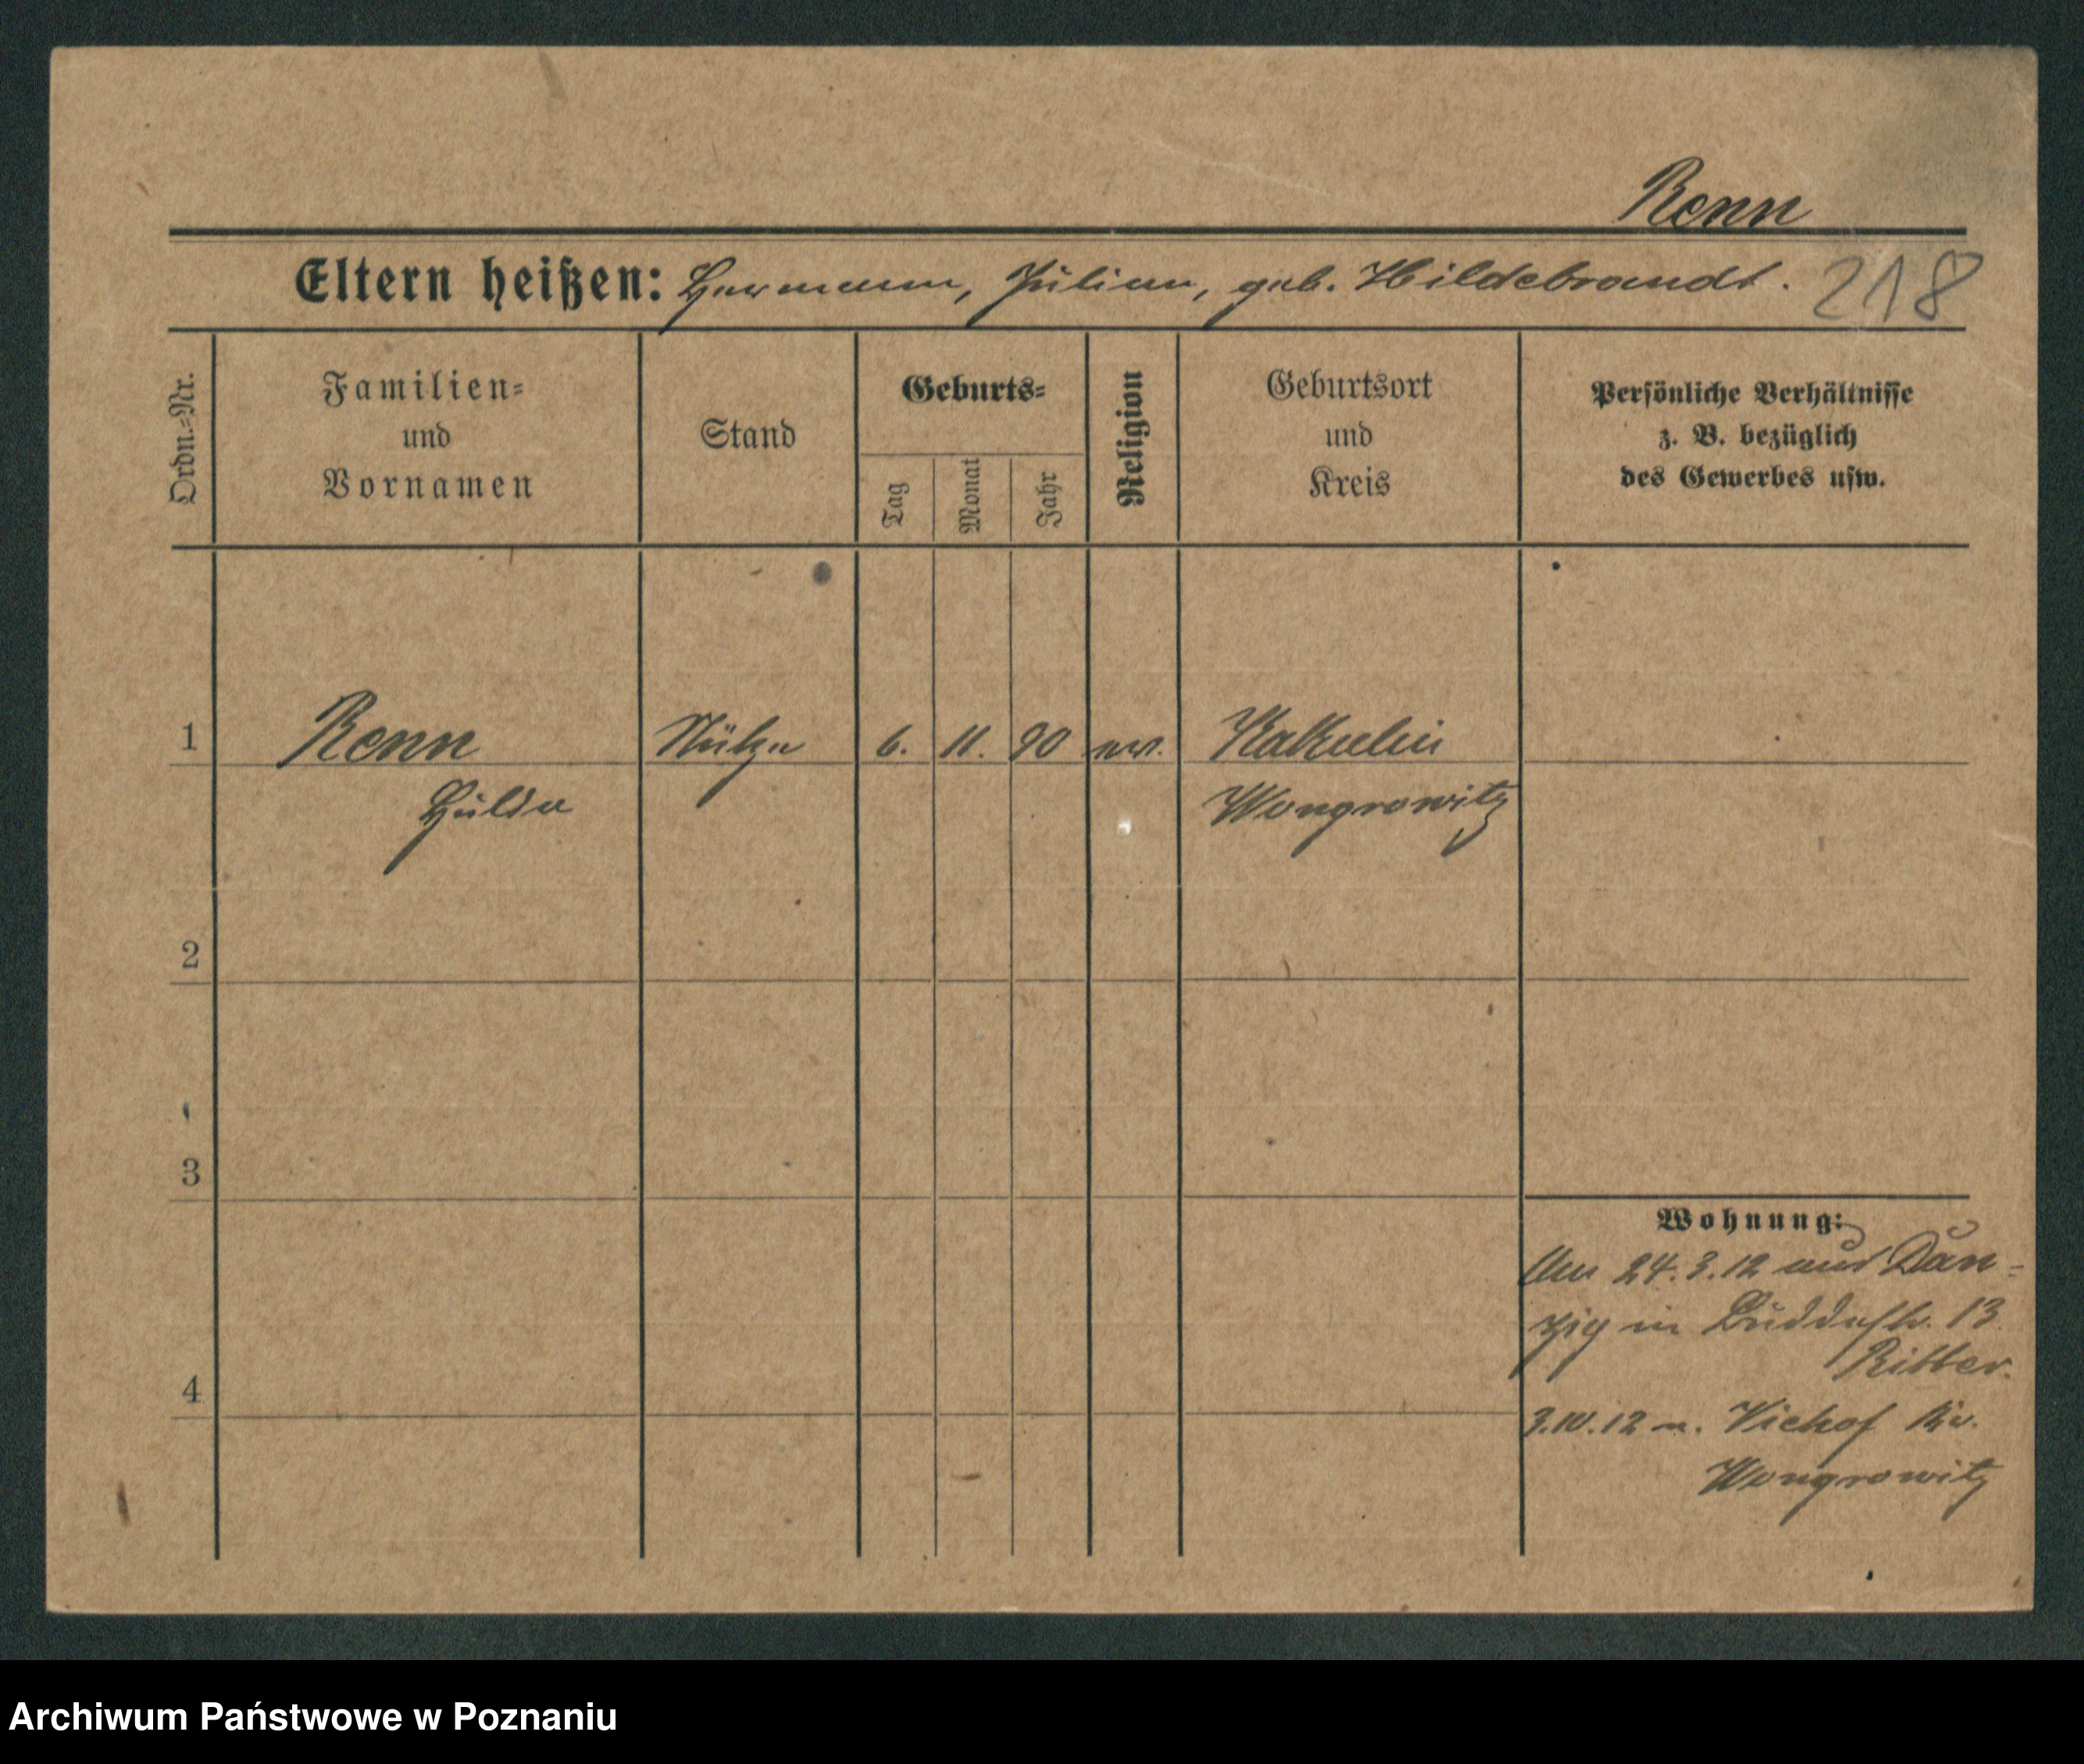 Renn
Eltern heißen: Hermann, Juliane, geb. Hildebrandt.
218
Ordn.-Nr.
Familien-
und
Vornamen
Stand
Geburts-
Tag
Monat
Jahr
Religion
Geburtsort
und
Kreis
Persönliche Verhältnisse
z. B. bezüglich
des Gewerbes usw.
1
Renn
Stütze
6.
11.
90
ev.
Kakulin
Hulda
Wongrowitz
2
3
4
Wohnung:
24.3.12 aus Dan-
zig in Buddestr. 13
Ritter.
3.10.12 n. Viehof Kr.
Wongrowitz
Archiwum Państwowe w Poznaniu